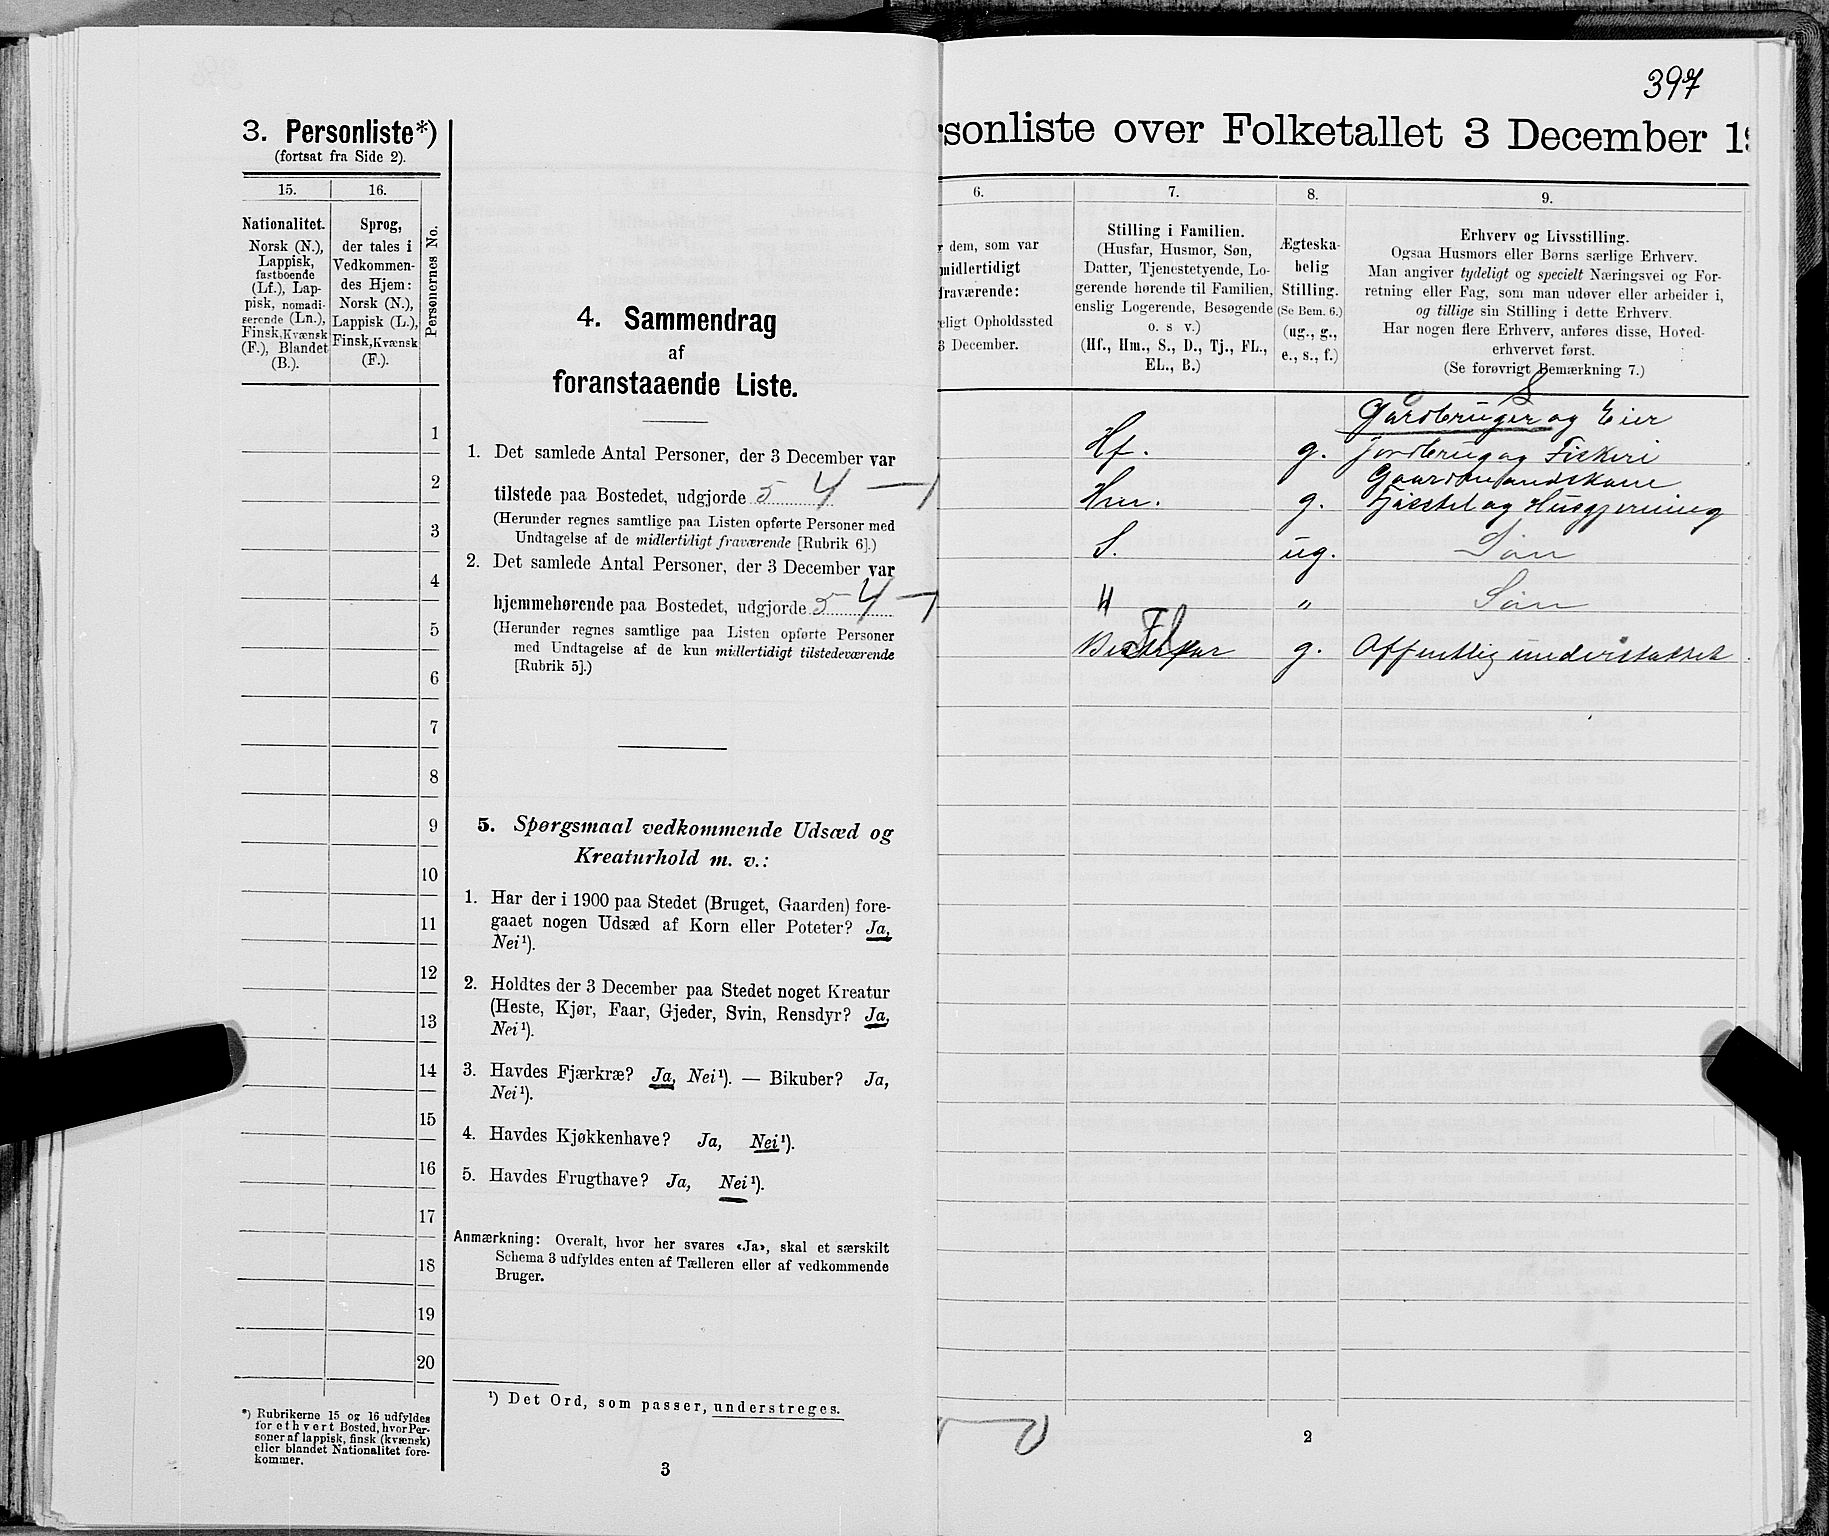 3. Personliste*)
(fortsat fra Side 2).
15.
16.
Personernes No.
Nationalitet.
Norsk (N.),
Lappisk,
fastboende
(Lf.), Lap-
pisk, nomadi-
serende (Ln.),
Finsk, Kvænsk
(F.), Blandet
(B.).
Sprog,
der tales i
Vedkommen-
des Hjem:
Norsk (N.),
Lappisk (L.),
Finsk, Kvænsk
(F.).
1
2
3
4
5
6
7
8
9
10
11
12
13
14
15
16
17
18
19
20
*) Rubrikerne 15 og 16 udfyldes
for ethvert Bosted, hvor Per-
soner af lappisk, finsk (kvænsk)
eller blandet Nationalitet fore-
kommer.
4. Sammendrag
af
foranstaaende Liste.
1. Det samlede Antal Personer, der 3 December var
tilstede paa Bostedet, udgjorde 5 4 — 1
(Herunder regnes samtlige paa Listen opførte Personer med
Undtagelse af de midlertidigt fraværende [Rubrik 6].)
2. Det samlede Antal Personer, der 3 December var
hjemmehørende paa Bostedet, udgjorde 5 4 — 1
(Herunder regnes samtlige paa Listen opførte Personer
med Undtagelse af de kun midlertidigt tilstedeværende
[Rubrik 5].)
5. Spørgsmaal vedkommende Udsæd og
Kreaturhold m. v.:
1. Har der i 1900 paa Stedet (Bruget, Gaarden) fore-
gaaet nogen Udsæd af Korn eller Poteter? Ja,
Nei¹).
2. Holdtes der 3 December paa Stedet noget Kreatur
(Heste, Kjør, Faar, Gjeder, Svin, Rensdyr? Ja,
Nei¹).
3. Havdes Fjærkræ? Ja, Nei¹). — Bikuber? Ja,
Nei¹).
4. Havdes Kjøkkenhave? Ja, Nei¹).
5. Havdes Frugthave? Ja, Nei¹).
Anmærkning: Overalt, hvor her svares «Ja», skal et særskilt
Schema 3 udfyldes enten af Tælleren eller af vedkommende
Bruger.
¹) Det Ord, som passer, understreges.
3
397
rsonliste over Folketallet 3 December 19
6.
dem, som var
midlertidigt
fraværende:
eligt Opholdssted
3 December.
7.
Stilling i Familien.
(Husfar, Husmor, Søn,
Datter, Tjenestetyende, Lo-
gerende hørende til Familien,
enslig Logerende, Besøgende
o. s v.)
(Hf., Hm., S., D., Tj., FL.,
EL., B.)
8.
Ægteska-
belig
Stilling.
(Se Bem. 6.)
(ug., g.,
e., s., f.)
9.
Erhverv og Livsstilling.
Ogsaa Husmors eller Børns særlige Erhverv.
Man angiver tydeligt og specielt Næringsvei og For-
retning eller Fag, som man udøver eller arbeider i,
og tillige sin Stilling i dette Erhverv.
Har nogen flere Erhverv, anføres disse, Hoved-
erhvervet først.
(Se forøvrigt Bemærkning 7.)
S
Gardbruger og Eier
Hf. g. Jordbrug og Fiskeri
Gaardmandskone
Hm. g. Fjøsstel og Husgjerning
S. ug. Søn
" " Søn
Fl g. Offentlig understøttet
2